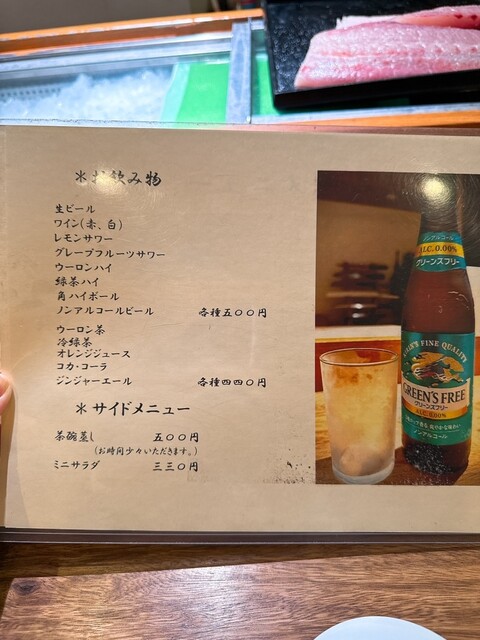 ＊お飲み物
生ビール
ワイン(赤、白)
レモンサワー
グレープフルーツサワー
ウーロンハイ
緑茶ハイ
角ハイボール
ノンアルコールビール 各種五〇〇円
ウーロン茶
冷緑茶
オレンジジュース
コカ・コーラ
ジンジャーエール 各種四四〇円
＊サイドメニュー
茶碗蒸し 五〇〇円
(お時間少々いただきます。)
ミニサラダ 三三〇円
ノンアルコール
ALC.0.00%
グリーンズフリー
KIRIN'S FINE QUALITY
GREEN'S FREE
グリーンズフリー
ALC.0.00%
ノンアルコール